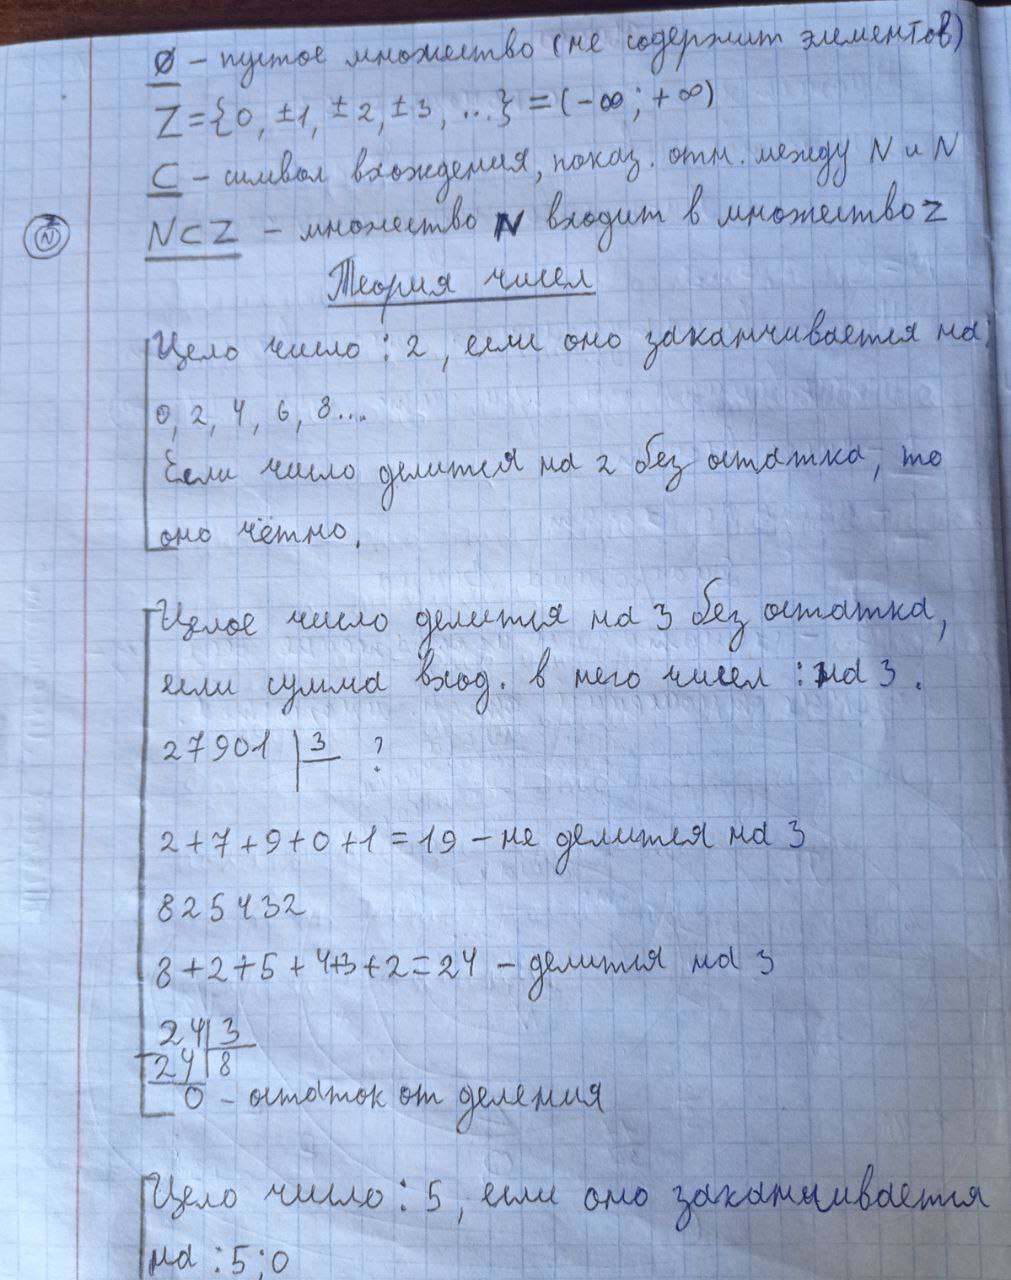 Ø – пустое множество (не содержит элементов)
Z = {0, ±1, ±2, ±3, ...} = (-∞; +∞)
⊂ – символ вхождения, показ. отн. между N и N
N ⊂ Z – множество N входит в множество Z
Z
N
Теория чисел
Цело число : 2, если оно заканчивается на:
0, 2, 4, 6, 8...
Если число делится на 2 без остатка, то
оно чётно.
Целое число делится на 3 без остатка,
если сумма вход. в него чисел : на 3.
27901 | 3 ?
2+7+9+0+1=19 – не делится на 3
825432
8+2+5+4+3+2=24 – делится на 3
24 | 3
-24 | 8
0 – остаток от деления
Цело число : 5, если оно заканчивается
на : 5; 0